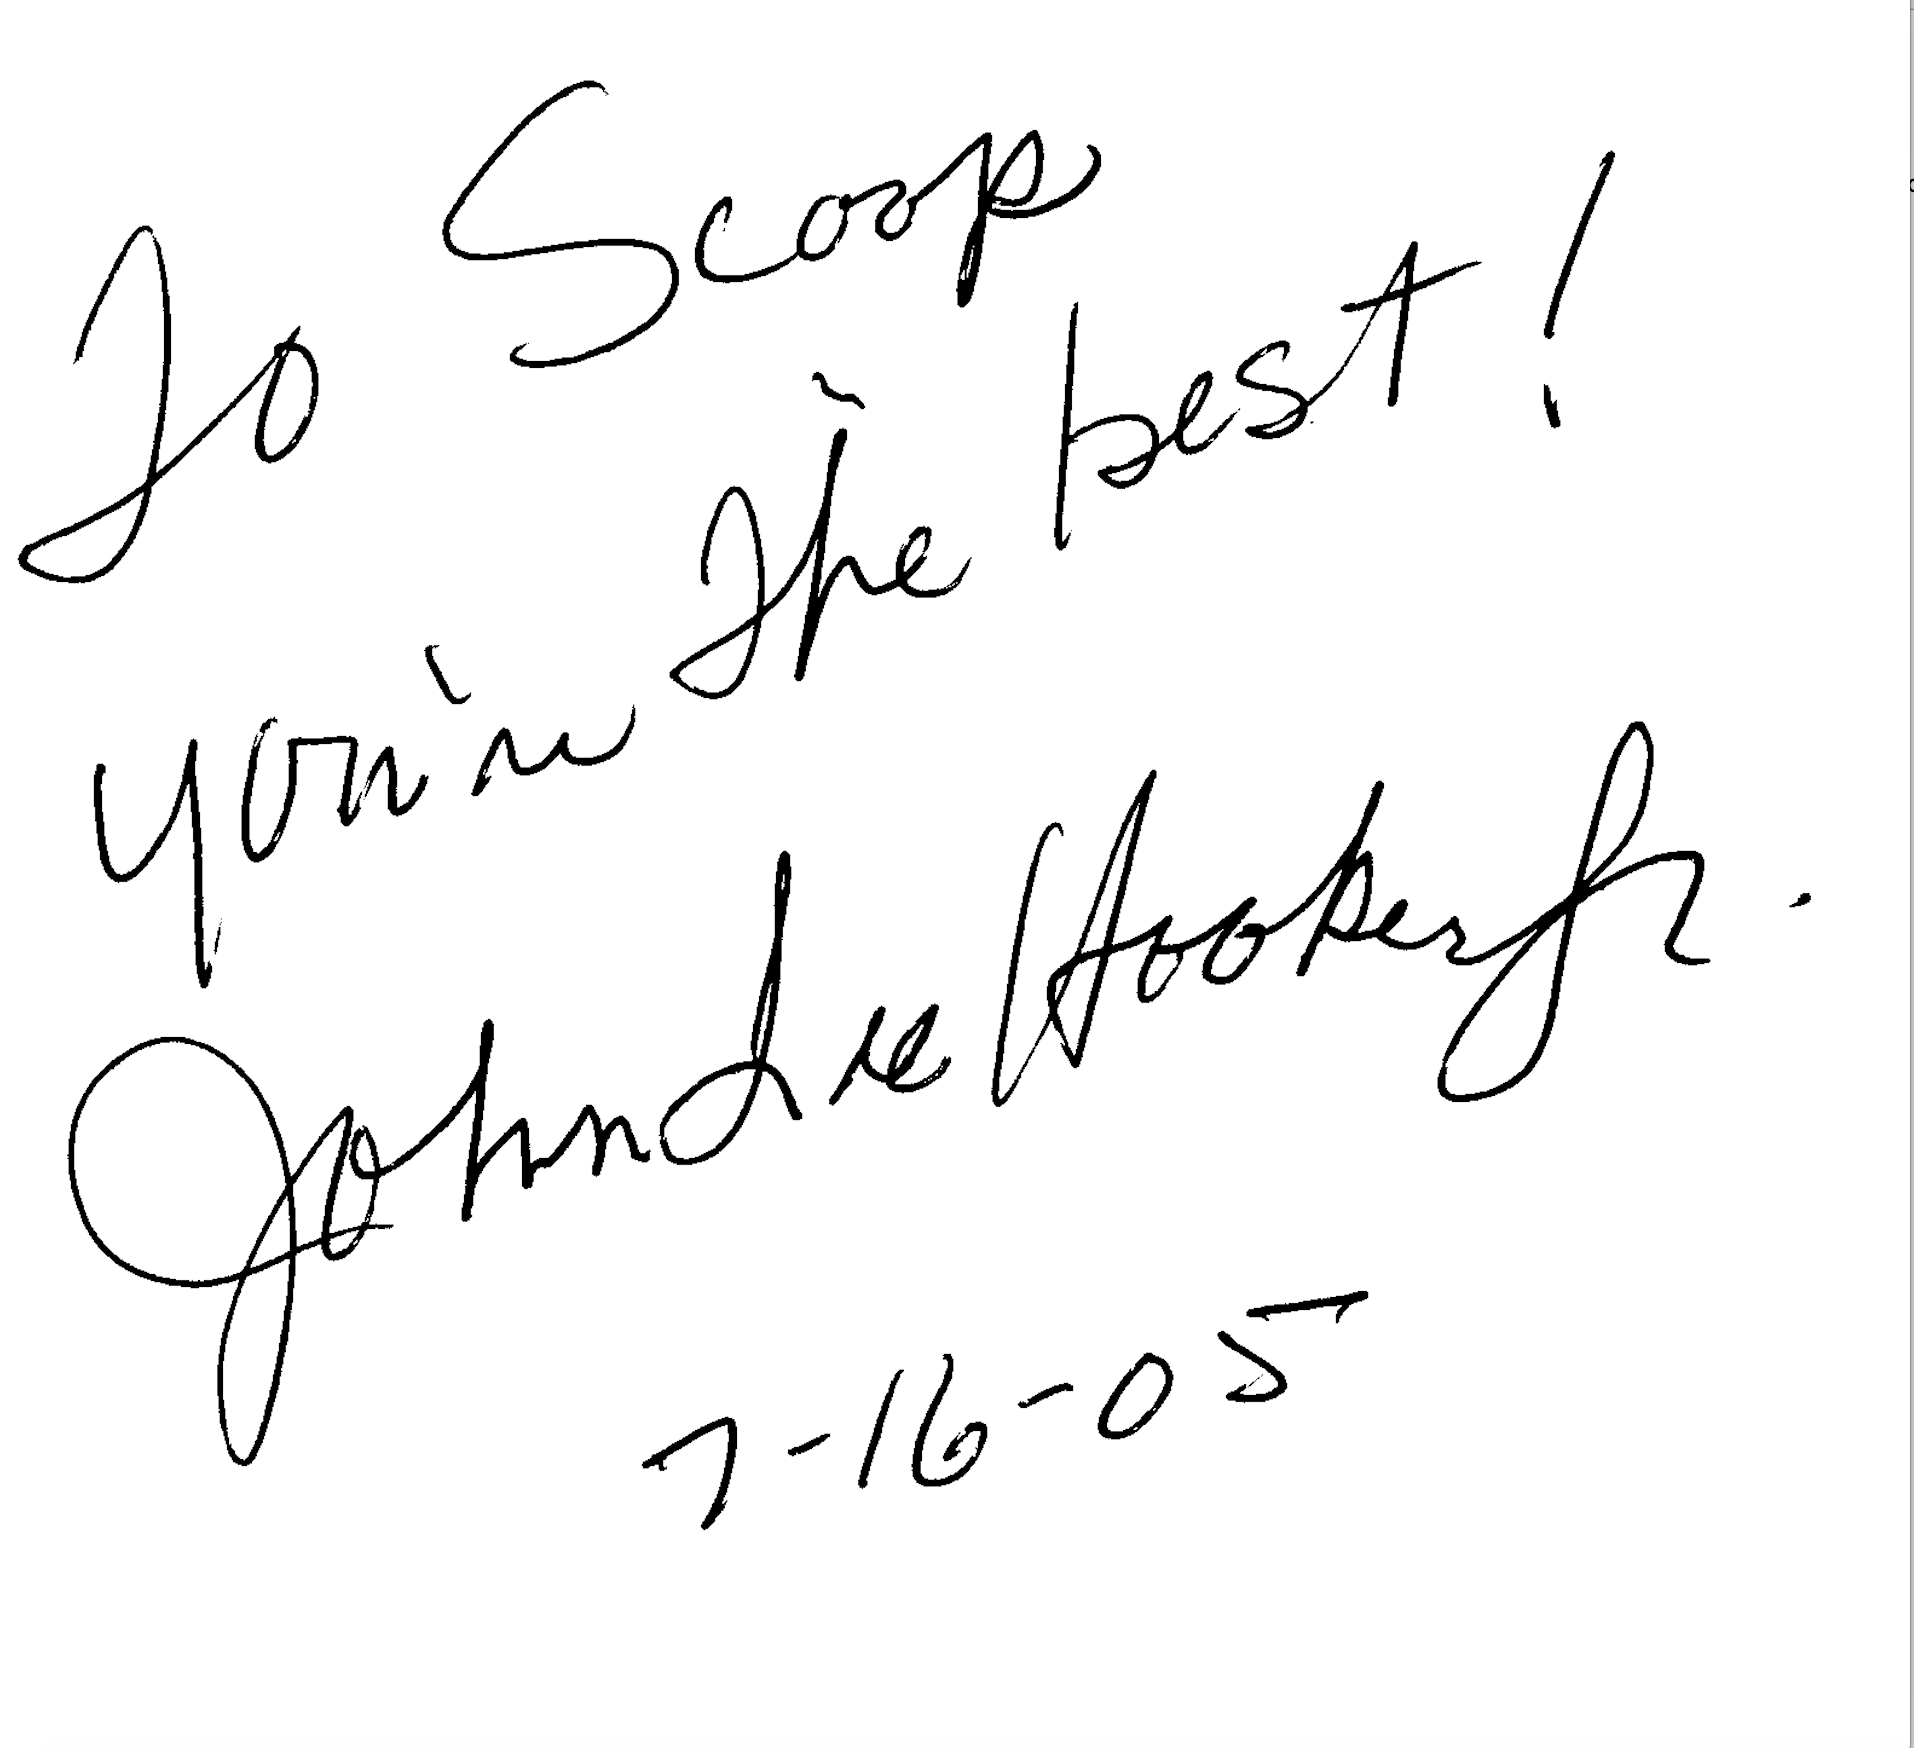 To Scoop
you're the best!
John Lee Hooker Jr.
7-16-05